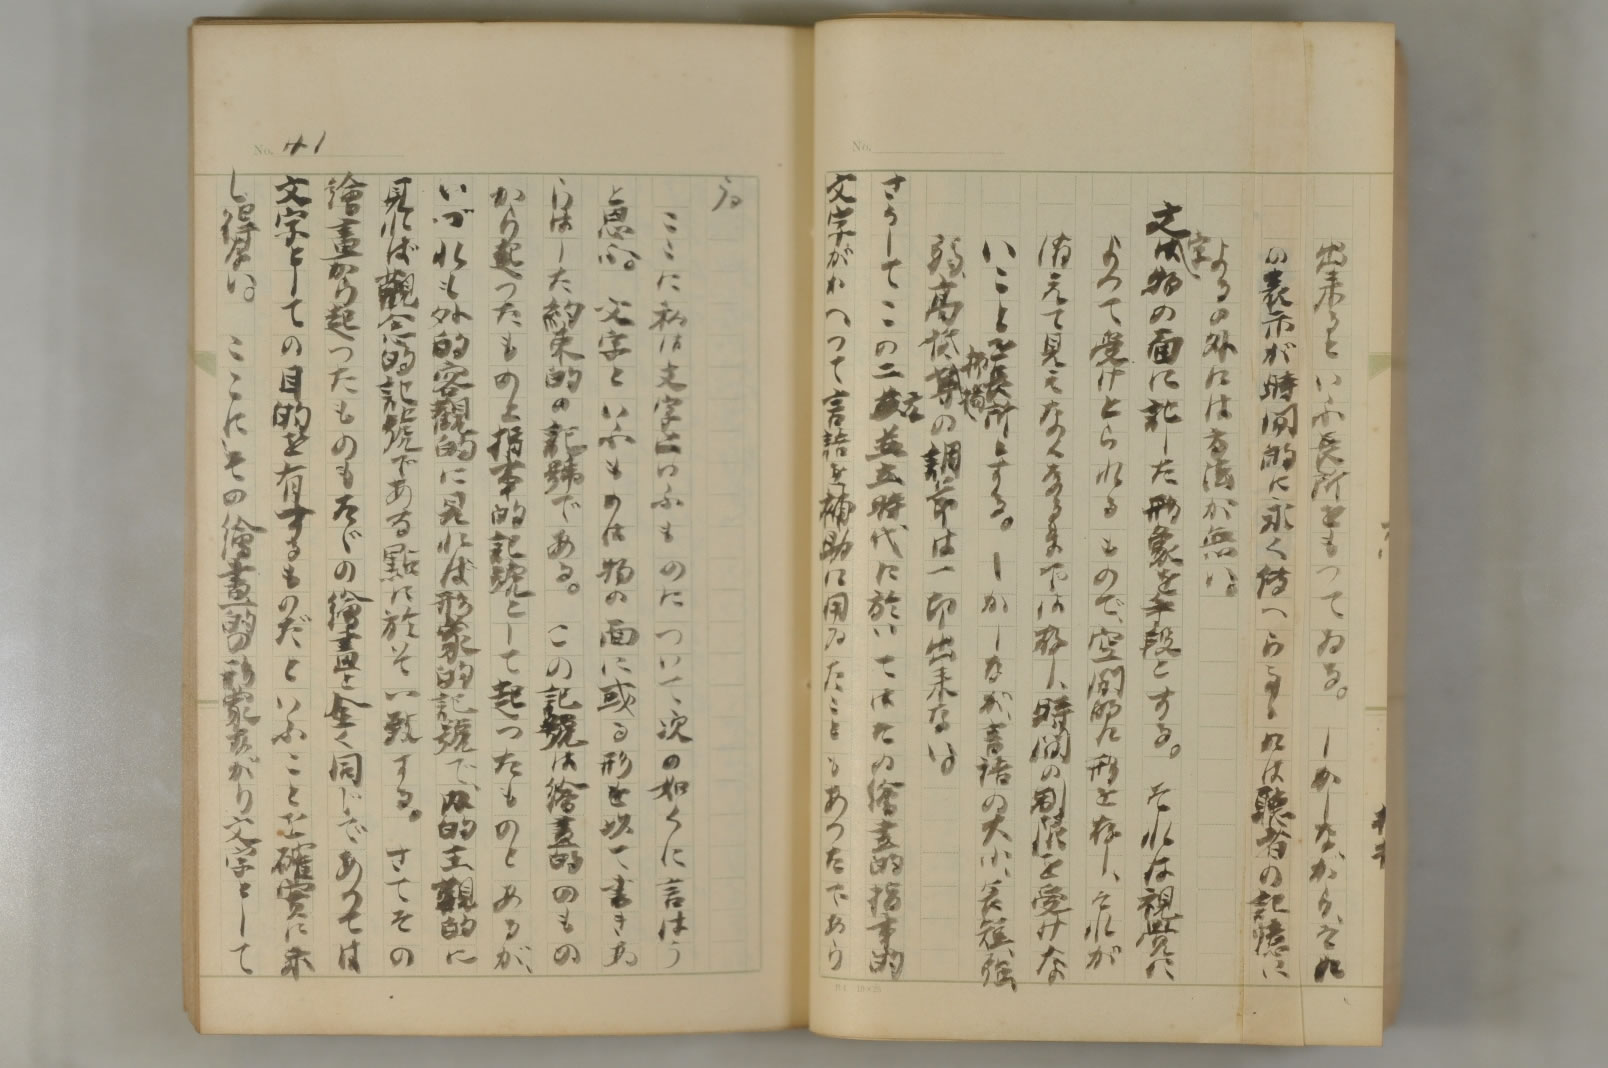 出来るといふ長所をもつてゐる。しかしながら、それ
の表示が時間的に永く傳へらるゝには聽者の記憶に
よるの外には方法が無い。
文字は物の面に記した形象を手段とする。それは視覺に
よつて受けとられるもので、空間的に形を存し、それが
消えて見えなくなるまでは存し、時間の制限を受けな
いことを長所とする。しかしながら、言語の大小、長短、強
弱、高低、抑揚の調節は一切出来ない。
さうしてこの二者並立時代に於いてはたゞ繪畫的指事的
文字がかへつて言語を補助に用ゐたこともあつたであら
う。
No. 41
ここに私は文字といふものについて次の如くに言はう
と思ふ。文字といふものは物の面に或る形を以て書きあ
らはした約束的の記號である。この記號は繪畫的のもの
から起つたものと指事的記號として起つたものとあるが、
いづれも外的客觀的に見れば形象的記號で、内的主觀的に
見れば觀念的記號である點に於て一致する。さてその
繪畫から起つたものもたゞの繪畫と全く同じであつては
文字としての目的を有するものだといふことを確實に示
し得ない。ここにその繪畫的形象ながり文字として